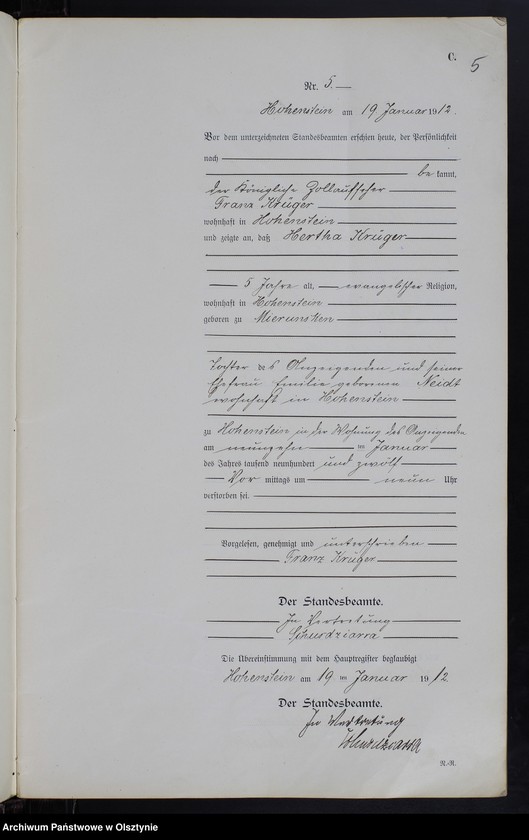 C.
5
Nr. 5.
Hohenstein am 19 Januar 1912.
Vor dem unterzeichneten Standesbeamten erschien heute, der Persönlichkeit
nach
be kannt,
der Königliche Zollaufseher
Franz Krüger
wohnhaft in Hohenstein
und zeigte an, daß Hertha Krüger
5 Jahre alt, evangelischer Religion,
wohnhaft in Hohenstein
geboren zu Mierunsken
Tochter des Anzeigenden und seiner
Ehefrau Emilie geborenen Neidt
wohnhaft in Hohenstein
zu Hohenstein in der Wohnung des Anzeigenden
am neunzehn ten Januar
des Jahres tausend neunhundert und zwölf
Vor mittags um neun Uhr
verstorben sei.
Vorgelesen, genehmigt und unterschrieben
Franz Krüger
Der Standesbeamte.
In Vertretung
Die Übereinstimmung mit dem Hauptregister beglaubigt
Hohenstein am 19 ten Januar 1912
Der Standesbeamte.
In Vertretung
N.-R.
Archiwum Państwowe w Olsztynie